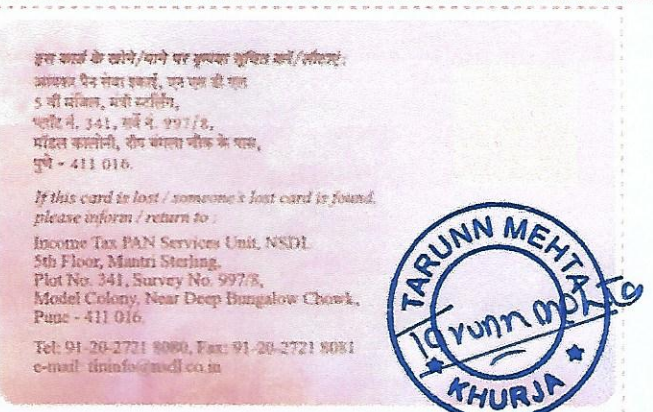 इस कार्ड के खोने/पाने पर कृपया सूचित करें/लौटाएं:
आयकर पैन सेवा इकाई, एन एस डी एल
5 वीं मंजिल, मंत्री स्टर्लिंग,
प्लॉट नं. 341, सर्वे नं. 997/8,
मॉडल कालोनी, दीप बंगला चौक के पास,
पुणे - 411 016.
If this card is lost / someone's lost card is found,
please inform / return to :
Income Tax PAN Services Unit, NSDL
5th Floor, Mantri Sterling,
Plot No. 341, Survey No. 997/8,
Model Colony, Near Deep Bungalow Chowk,
Pune - 411 016.
Tel: 91-20-2721 8080, Fax: 91-20-2721 8081
e-mail: tininfo@nsdl.co.in
TARUNN MEHTA
Tarunn Mehta
KHURJA